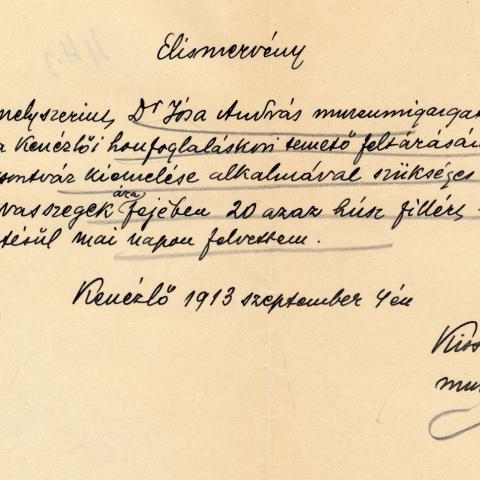 Elismervény
melyszerint, Dr Jósa András muzeumigazgat
a Kenézlői honfoglaláskori temető feltárásán
ontváz kiemelése alkalmával szükséges
vasszegek ára fejében 20 azaz húsz fillért,
tésül mai napon felvettem.
Kenézlő 1913 szeptember 4én
Kiss
mu